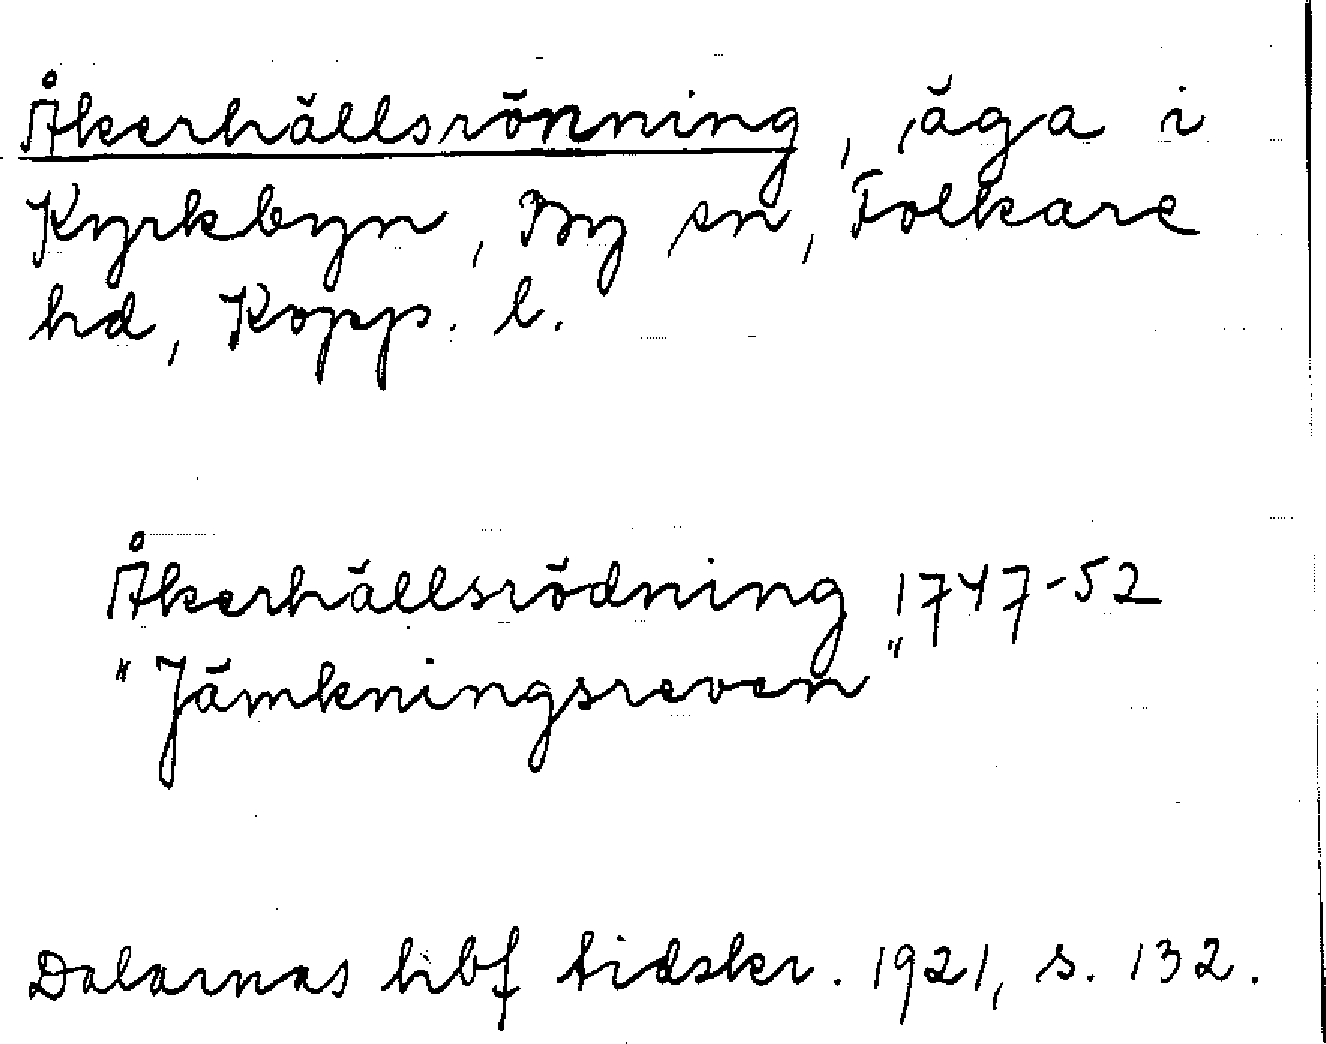 Åkerhällsrönning, äga i
Kyrkbyn, By sn, Folkare
hd, Kopp. l.
Åkerhällsrödning 1747-52
"Jämkningsreven"
Dalarnas hbf tidskr. 1921, s. 132.